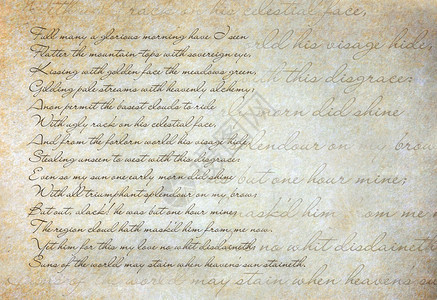 Full many a glorious morning have I seen
Flatter the mountain-tops with sovereign eye,
Kissing with golden face the meadows green,
Gilding pale streams with heavenly alchemy;
Anon permit the basest clouds to ride
With ugly rack on his celestial face,
And from the forlorn world his visage hide,
Stealing unseen to west with this disgrace:
Even so my sun one early morn did shine
With all triumphant splendour on my brow;
But out, alack! he was but one hour mine;
The region cloud hath mask'd him from me now.
Yet him for this my love no whit disdaineth;
Suns of the world may stain when heavens sun staineth.
rack on his celestial face,
world his visage hide,
th this disgrace:
morn did shine
splendour on my brow
but one hour mine;
mask'd him from me now
no whit disdaineth
of the world may stain when heavens sun